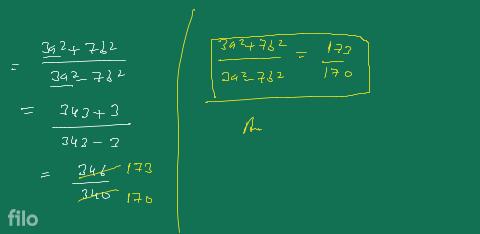 = 3a²+7b² / 3a²-7b²
= 343+3 / 343-3
= 346 173 / 340 170
3a²+7b² / 3a²-7b² = 173 / 170
filo